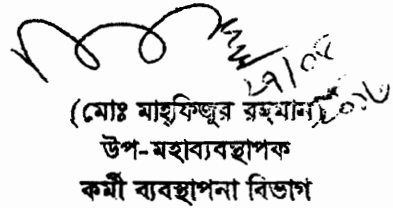 (মোঃ মাহ্‌ফিজুর রহমান)
উপ-মহাব্যবস্থাপক
কর্মী ব্যবস্থাপনা বিভাগ